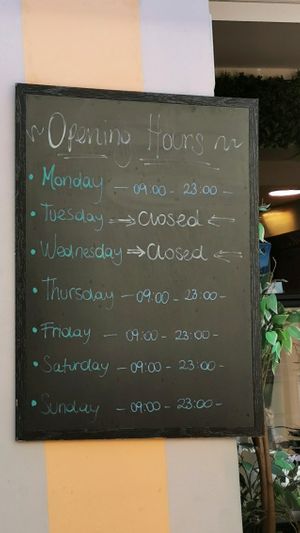 ~ Opening Hours ~
• Monday – 09:00 - 23:00 –
• Tuesday ⇒ Closed ⇐
• Wednesday ⇒ Closed ⇐
• Thursday – 09:00 - 23:00 –
• Friday – 09:00 - 23:00 –
• Saturday – 09:00 - 23:00 –
• Sunday – 09:00 - 23:00 –